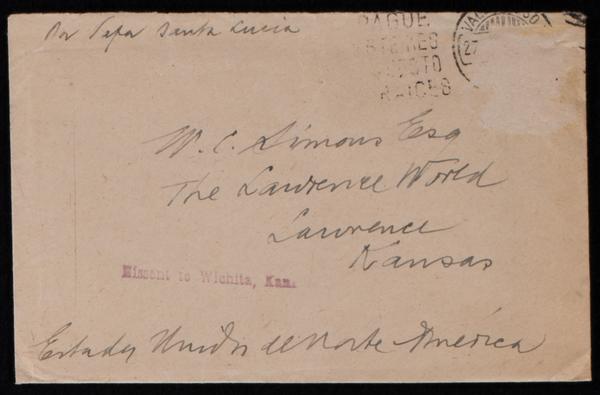 Por Vapor Santa Lucia
PAGUE
ANTES
RAICES
VALPARAISO
27
W. C. Simons Esq
The Lawrence World
Lawrence
Kansas
Missent to Wichita, Kan.
Estados Unidos de Norte América